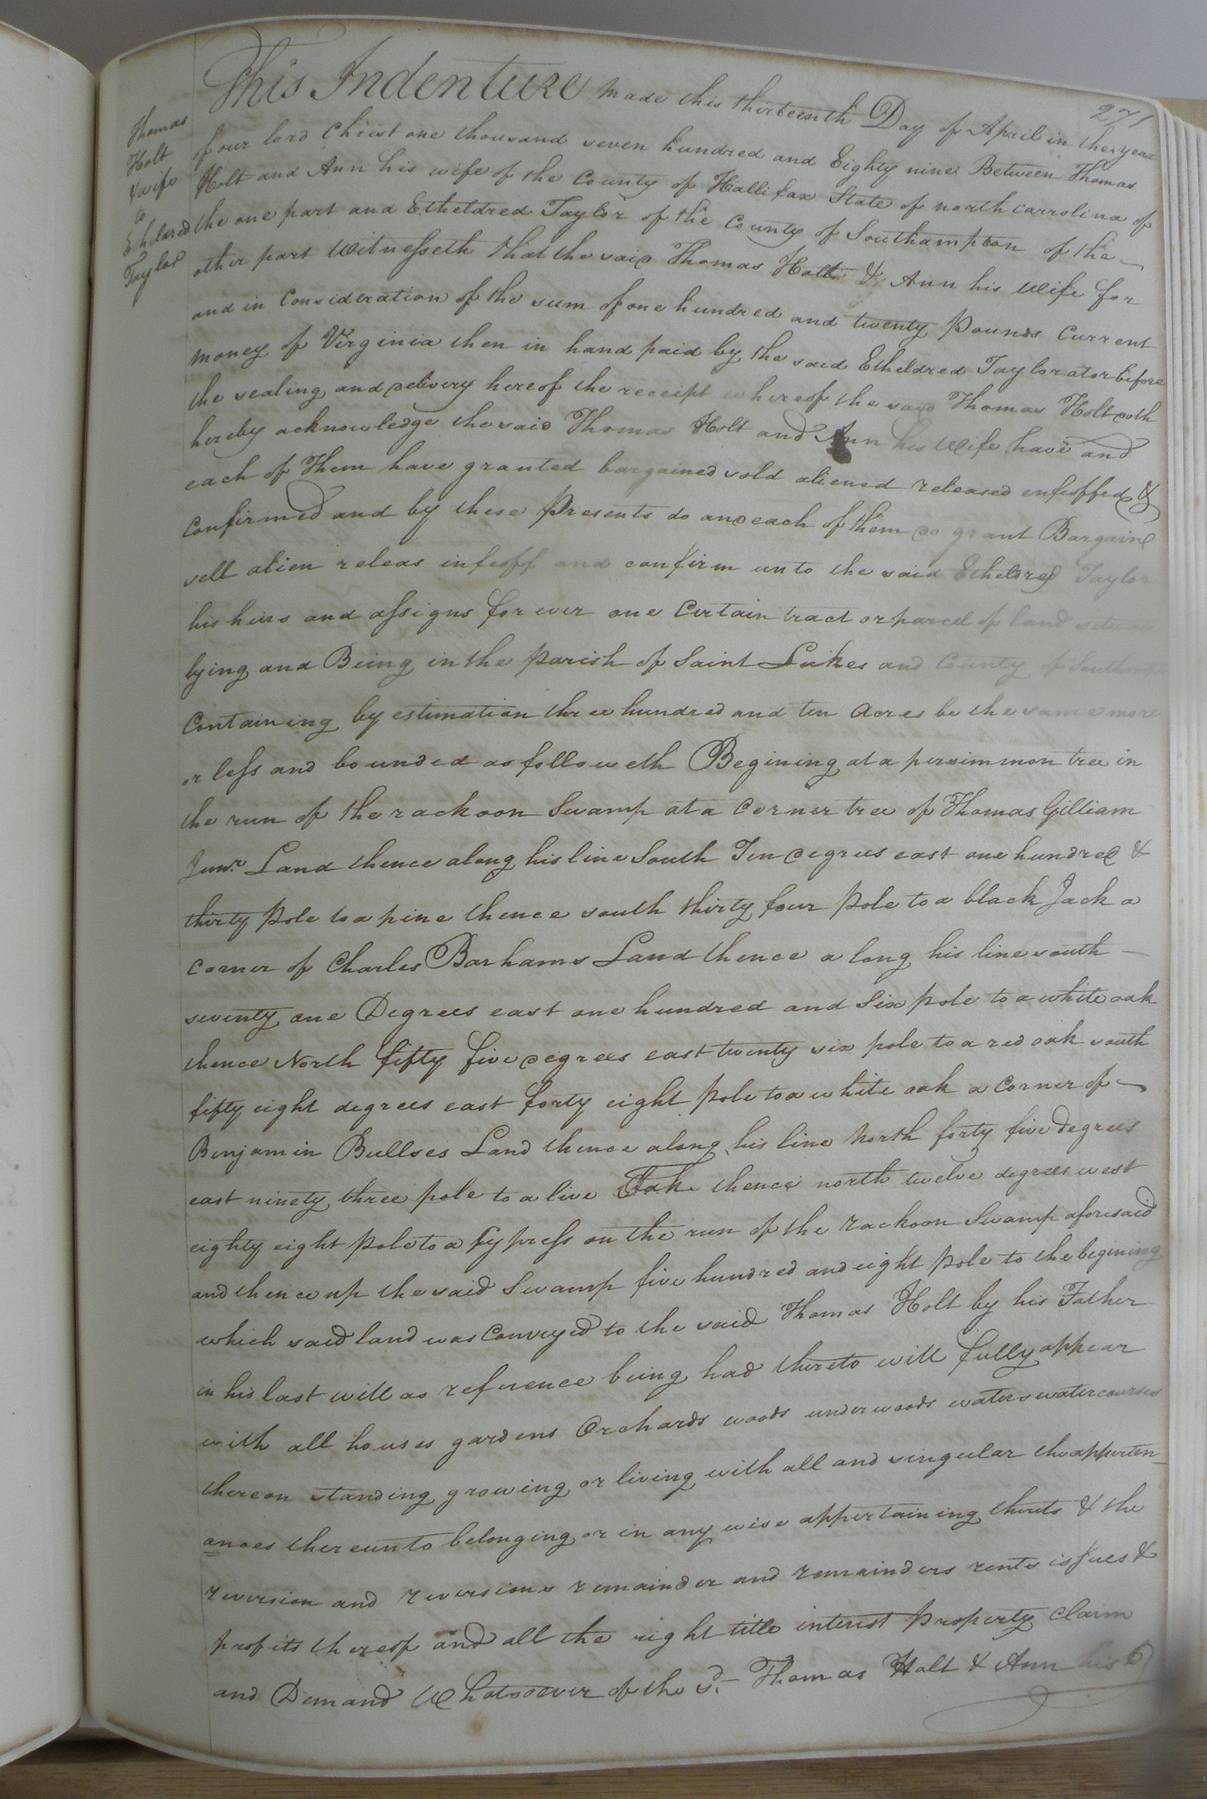 271
Thomas
Holt
& wife
to
Etheldred
Taylor
This Indenture made this thirteenth Day of April in the year
of our lord Christ one thousand seven hundred and Eighty nine Between Thomas
Holt and Ann his wife of the County of Hallifax State of north carrolina of
the one part and Etheldred Taylor of the County of Southampton of the
other part Witnesseth that the said Thomas Holt & Ann his Wife for
and in Consideration of the sum of one hundred and twenty Pounds Current
money of Virginia then in hand paid by the said Etheldred Taylor ator before
the sealing and delivery hereof the receipt whereof the said Thomas Holt doth
hereby acknowledge the said Thomas Holt and Ann his Wife have and
each of Them have granted bargained sold aliened released enfeoffed &
Confirmed and by these Presents do and each of them do grant Bargain
sell alien releas infeoff and confirm unto the said Etheldred Taylor
his heirs and assigns for ever one Certain tract or parcel of land
lying and Being in the parish of Saint Lukes and County of
Containing by estimation three hundred and ten Acres be the same more
or less and bounded as followeth Begining at a persimmon tree in
the run of the rackoon Swamp at a Corner tree of Thomas Gilliam
Junr. Land thence along his line South Ten degrees east one hundred &
thirty Pole to a pine thence south thirty four Pole to a black Jack a
corner of Charles Barhams Land thence a long his line south
seventy one Degrees east one hundred and Six pole to a white oak
thence North fifty five degrees east twenty six pole to a red oak south
fifty eight degrees east forty eight Pole to a white oak a Corner of
Benjamin Bullses Land thence along his line North forty five degrees
east ninety three pole to a live Oak thence north twelve degrees west
eighty eight Pole to a Sypress on the run of the rackoon Swamp aforesaid
and thence up the said Swamp five hundred and eight Pole to the begining
which said land was Conveyed to the said Thomas Holt by his Father
in his last will as reference being had thereto will fully appear
with all houses gardens Orchards woods underwoods waters watercourses
thereon standing growing or living with all and singular the apperten-
ances thereunto belonging or in any wise appertaining thereto & the
reversion and reversions remainder and remainders rents issues &
profits thereof and all the right title interest property claim
and Demand Whatsoever of the sd. Thomas Holt & Ann his